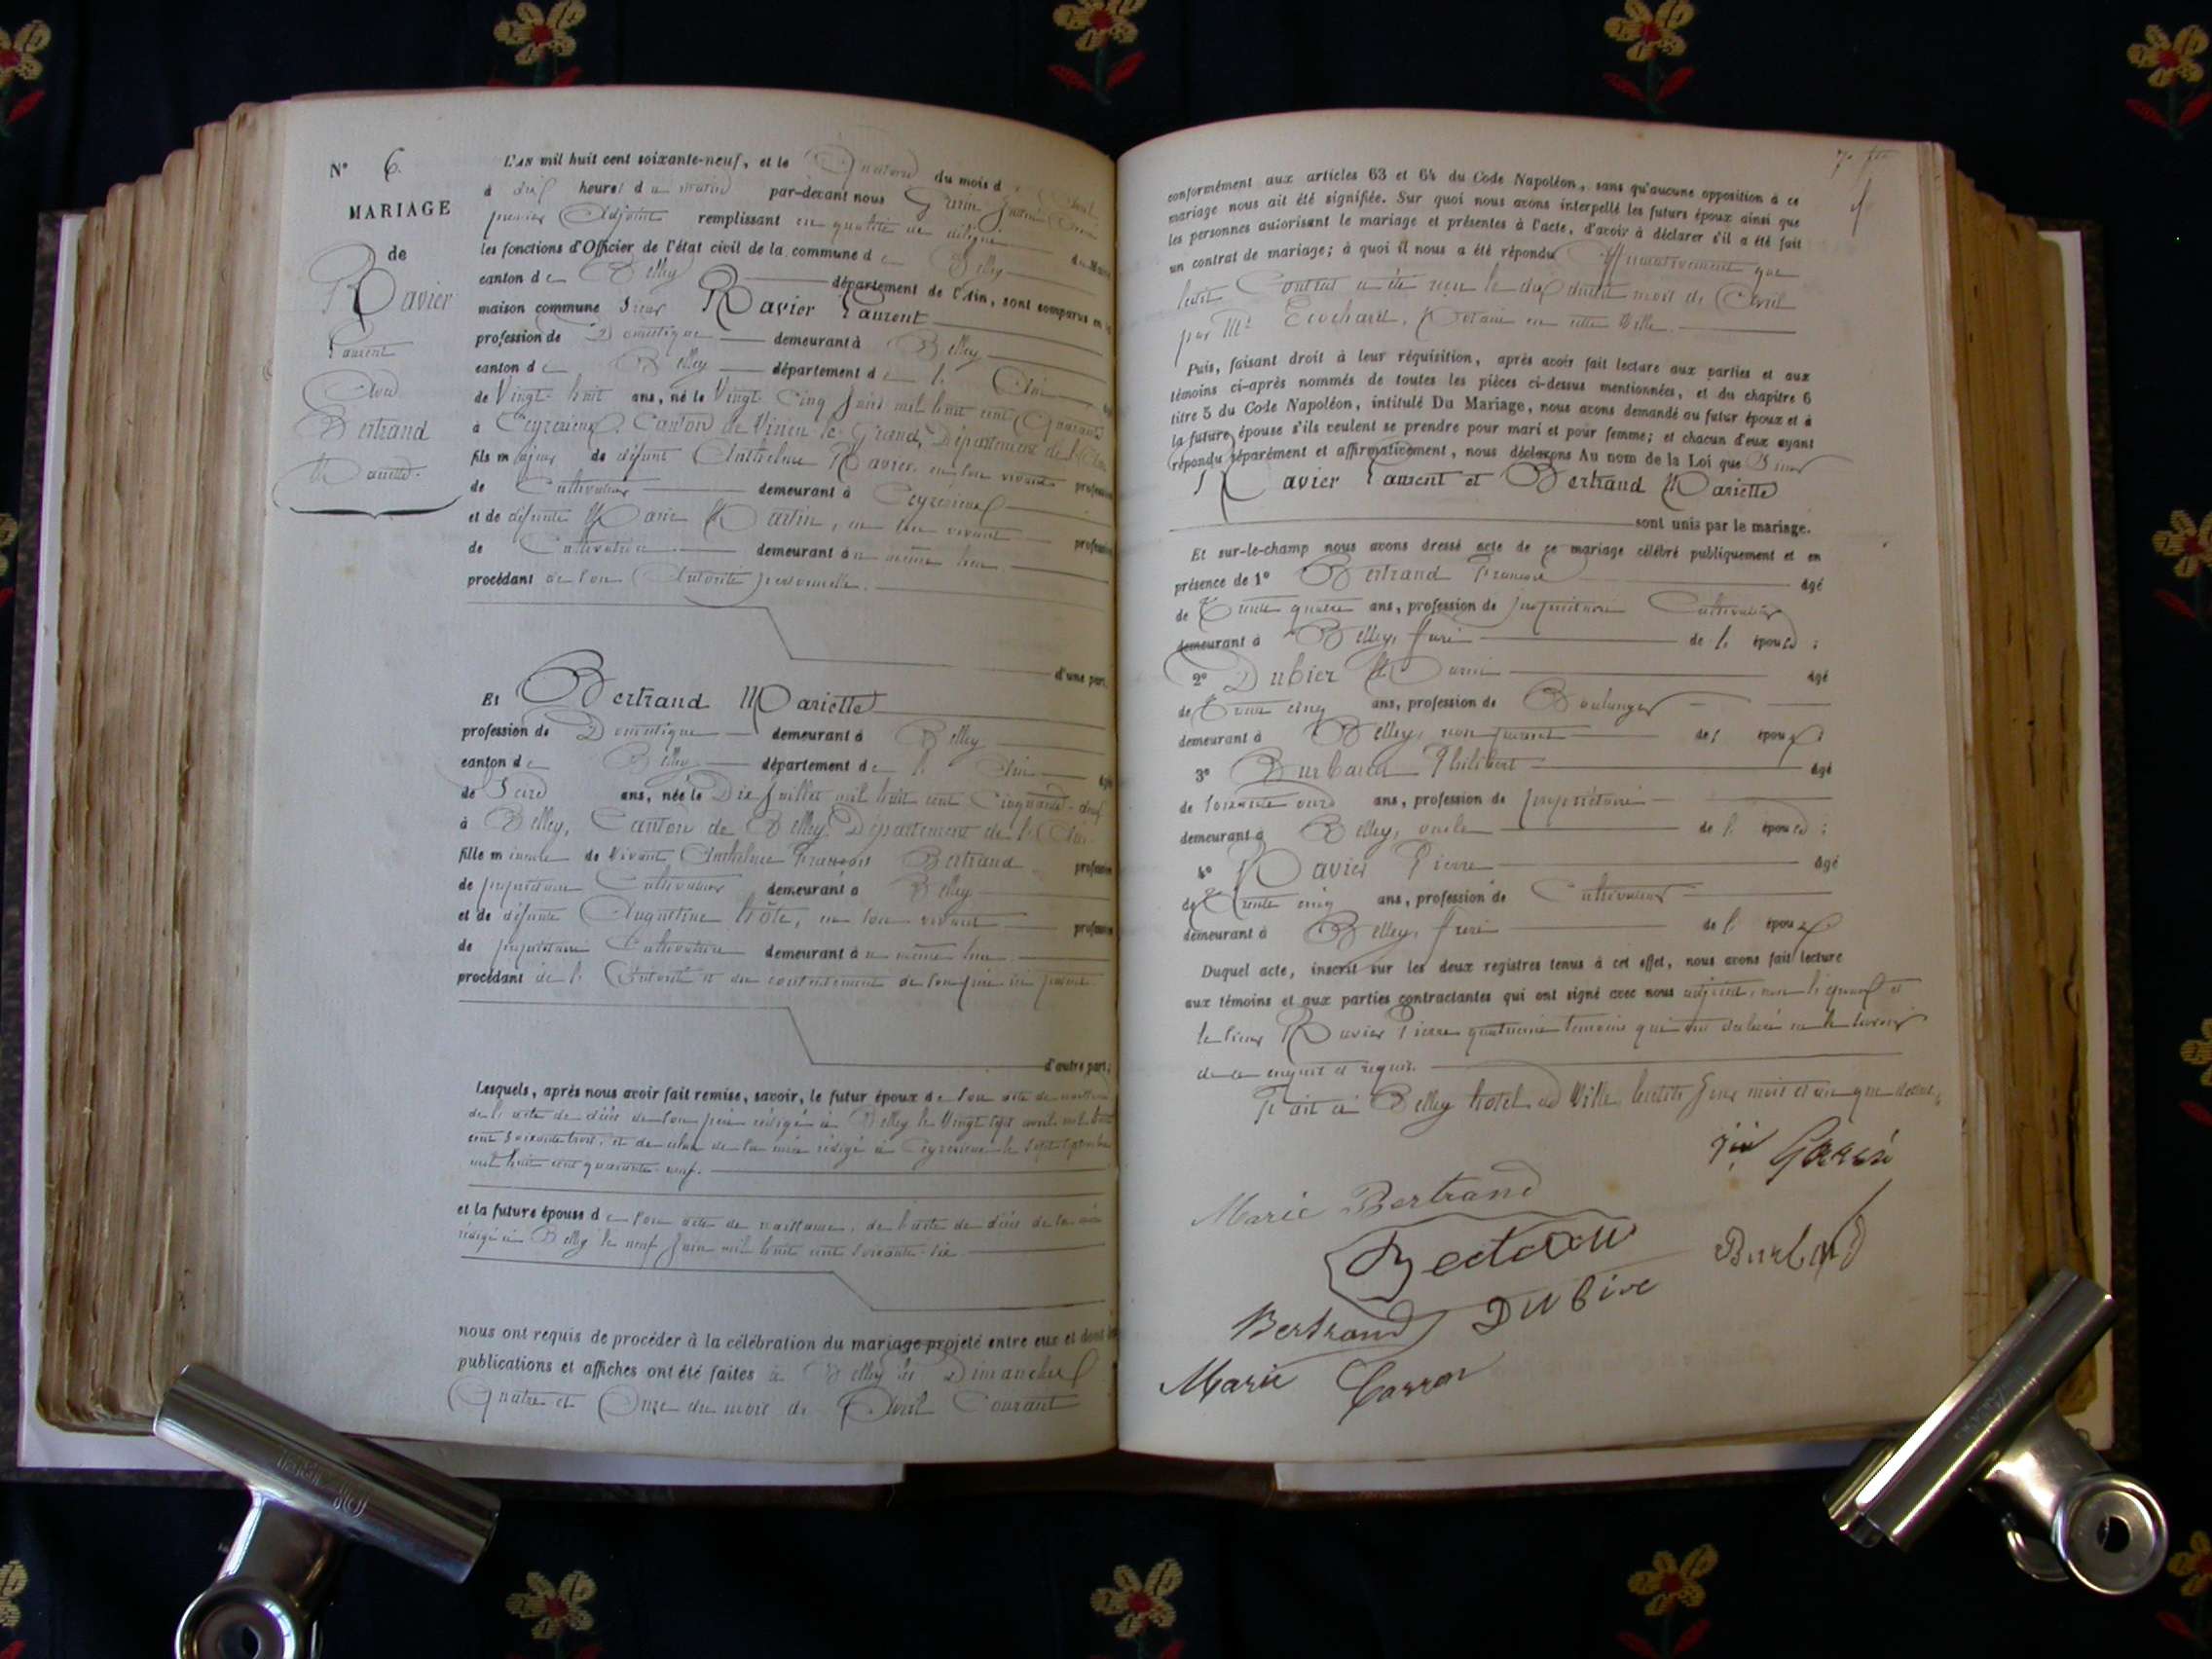 N° 6.
MARIAGE
de
Ravier
Laurent
Avec
Bertrand
Mariette.
L'AN mil huit cent soixante-neuf, et le Quatorze du mois d'Avril
à dix heures du matin par-devant nous
premier Adjoint remplissant en qualité de délégué du Maire
les fonctions d'Officier de l'état civil de la commune de Belley
canton de Belley département de l'Ain, sont comparus en la
maison commune Sieur Ravier Laurent
profession de Domestique demeurant à Belley
canton de Belley département de l'Ain
de Vingt-huit ans, né le Vingt Cinq Juin mil huit cent Quarante
à Ceyzérieux, Canton de Virieu le Grand, Département de l'Ain
fils majeur de défunt Anthelme Ravier, en son vivant profession
de Cultivateur demeurant à Ceyzérieux
et de défunte Marie Martin, en son vivant profession
de Cultivatrice demeurant au même lieu.
procédant de son Autorité personnelle.
d'une part,
Et Bertrand Mariette
profession de Domestique demeurant à Belley
canton de Belley département de l'Ain âgée
de Seize ans, née le Dix Juillet mil huit cent Cinquante-deux
à Belley, Canton de Belley, Département de l'Ain
fille mineure de vivant Anthelme François Bertrand profession
de propriétaire Cultivateur demeurant à Belley
et de défunte Augustine hôte, en son vivant profession
de propriétaire Cultivatrice demeurant au même lieu.
procédant de l'Autorité et du consentement de son père ici présent.
d'autre part;
Lesquels, après nous avoir fait remise, savoir, le futur époux de son acte de naissance
de l'acte de décès de son père rédigé à Belley le Vingt sept avril mil huit
cent soixante trois, et de celui de sa mère rédigé à Ceyzérieux le sept septembre
mil huit cent quarante-neuf.
et la future épouse de son acte de naissance, de l'acte de décès de sa mère
rédigé à Belley le neuf Juin mil huit cent soixante-six
nous ont requis de procéder à la célébration du mariage projeté entre eux et dont les
publications et affiches ont été faites à Belley les Dimanches
Quatre et Onze du mois d'Avril Courant
conformément aux articles 63 et 64 du Code Napoléon, sans qu'aucune opposition à ce
mariage nous ait été signifiée. Sur quoi nous avons interpellé les futurs époux ainsi que
les personnes autorisant le mariage et présentes à l'acte, d'avoir à déclarer s'il a été fait
un contrat de mariage; à quoi il nous a été répondu Affirmativement que
ledit Contrat a été reçu le dix dudit mois de Avril
par Me Ecochard, Notaire en cette Ville.
Puis, faisant droit à leur réquisition, après avoir fait lecture aux parties et aux
témoins ci-après nommés de toutes les pièces ci-dessus mentionnées, et du chapitre 6
titre 5 du Code Napoléon, intitulé Du Mariage, nous avons demandé au futur époux et à
la future épouse s'ils veulent se prendre pour mari et pour femme; et chacun d'eux ayant
répondu séparément et affirmativement, nous déclarons Au nom de la Loi que Sieur
Ravier Laurent et Bertrand Mariette
sont unis par le mariage.
Et sur-le-champ nous avons dressé acte de ce mariage célébré publiquement et en
présence de 1° Bertrand François âgé
de Trente quatre ans, profession de propriétaire Cultivateur
demeurant à Belley, frère de l'épouse;
2° Dubier Marie âgé
de Trente cinq ans, profession de Boulanger
demeurant à Belley, non parent de l'époux;
3° Philibert âgé
de soixante onze ans, profession de propriétaire
demeurant à Belley, oncle de l'épouse;
4° Ravier Pierre âgé
de Trente cinq ans, profession de Cultivateur
demeurant à Belley, frère de l'époux
Duquel acte, inscrit sur les deux registres tenus à cet effet, nous avons fait lecture
aux témoins et aux parties contractantes qui ont signé avec nous adjoint, non l'époux et
le sieur Ravier Pierre quatrième témoin qui ont déclaré ne le savoir
de ce enquis et requis.
Fait à Belley hotel de Ville lesdits Jour mois et an que dessus,
Marie Bertrand
Bertrand
Bertrand Dubier
Marie